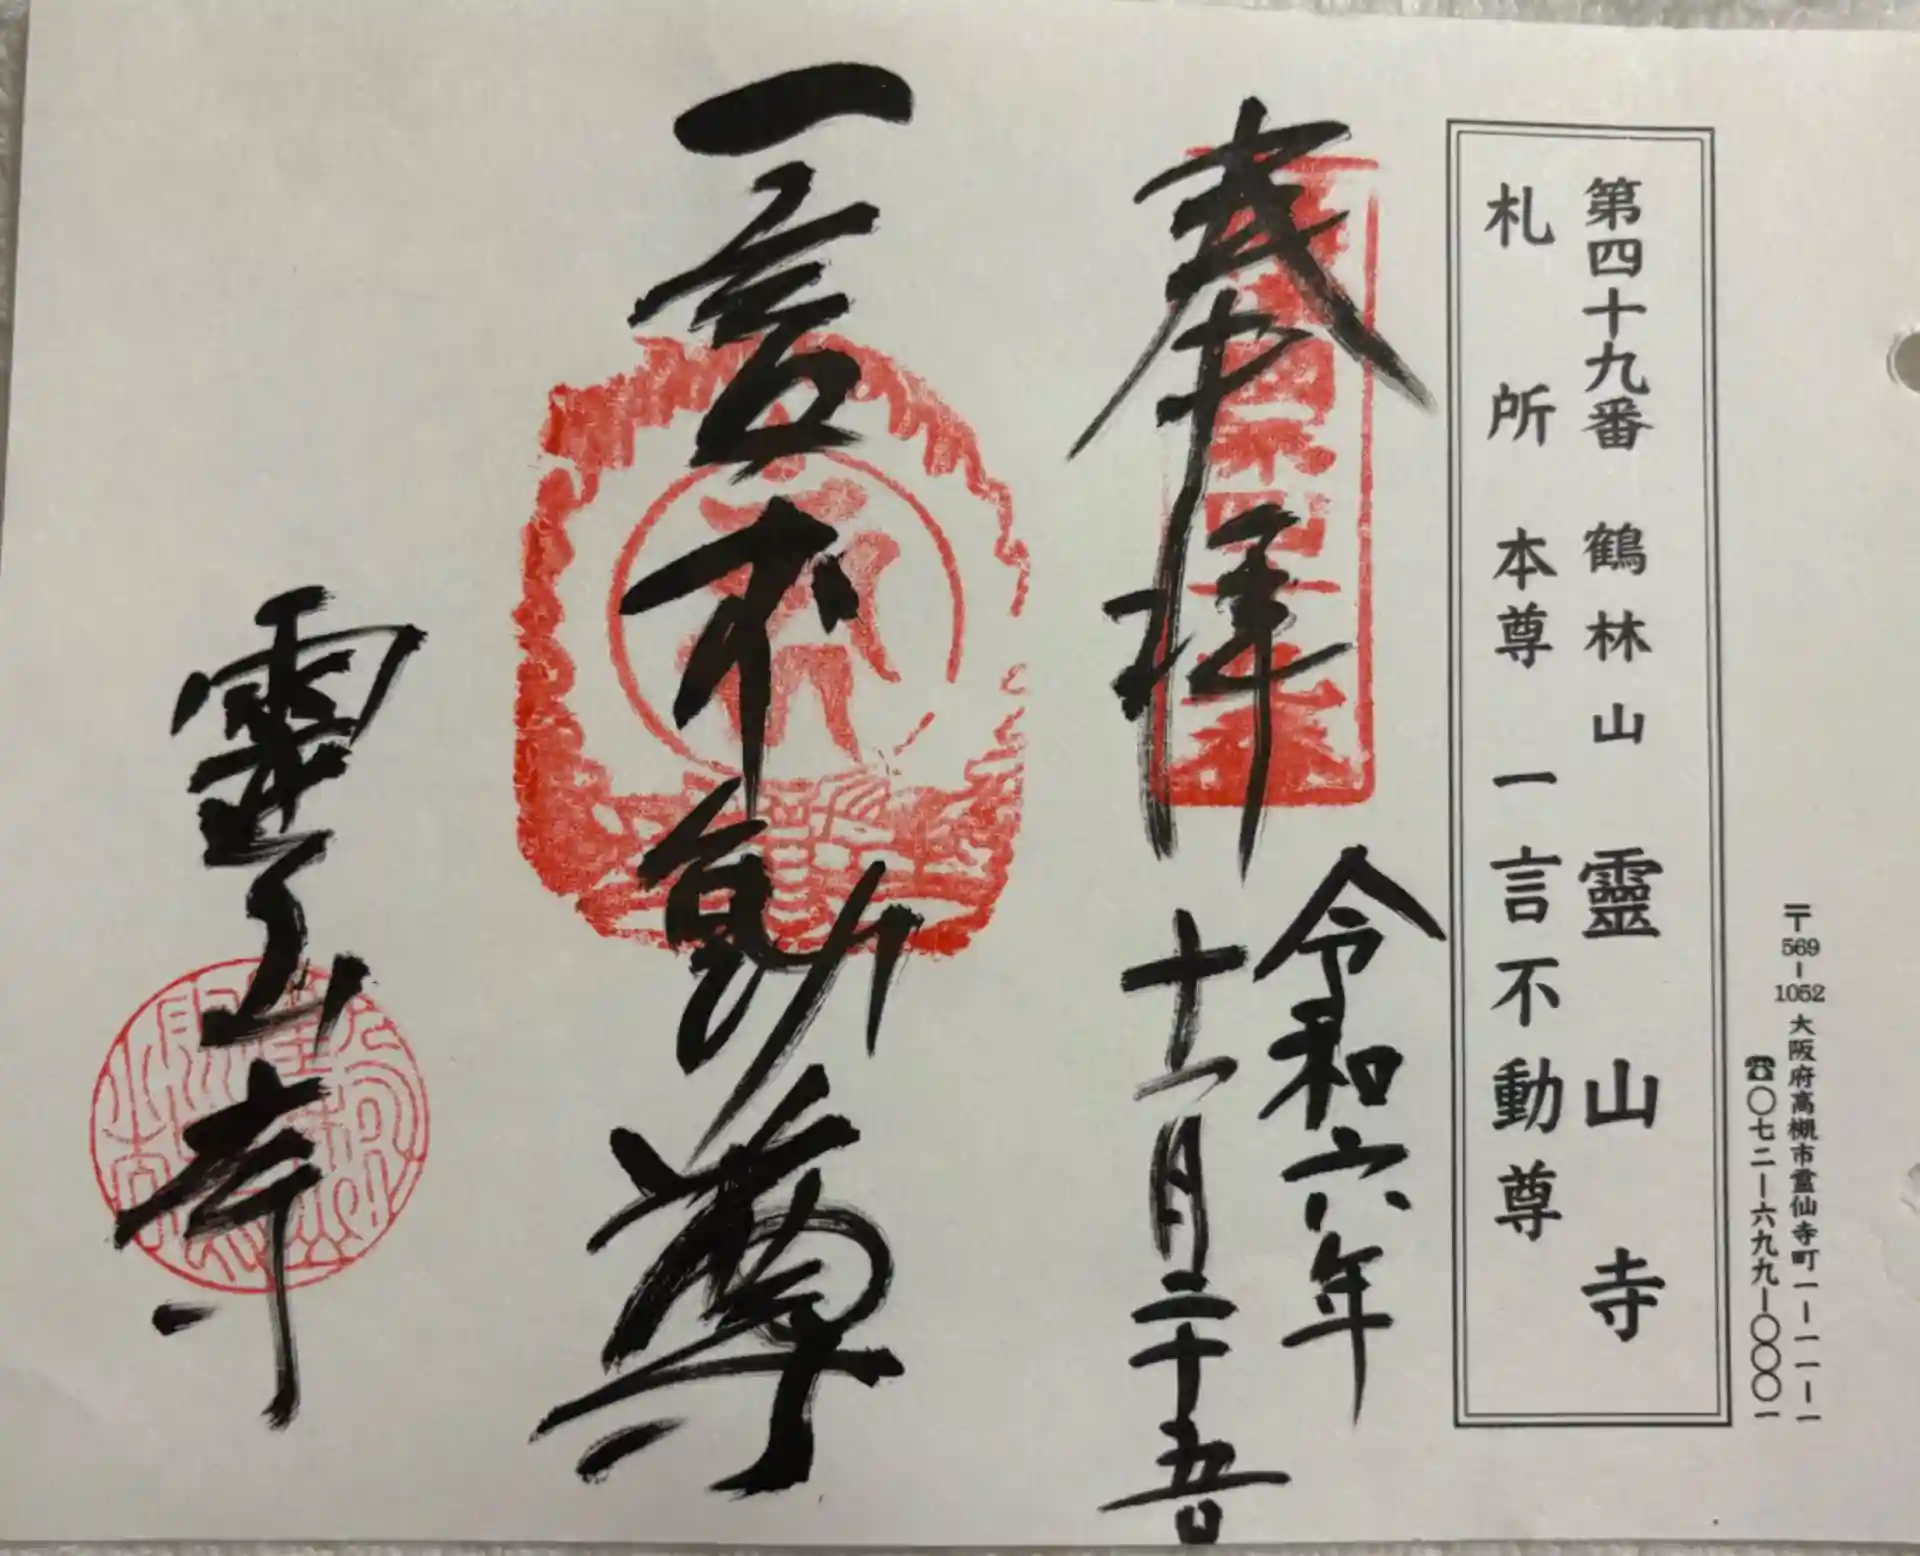 〒569-1052 大阪府高槻市霊仙寺町一ー一一一ー一
☎〇七二ー六九九ー〇〇〇一
第四十九番 鶴林山 靈山寺
札所本尊 一言不動尊
奉拝
令和六年
十一月二十五日
一言不動尊
靈山寺